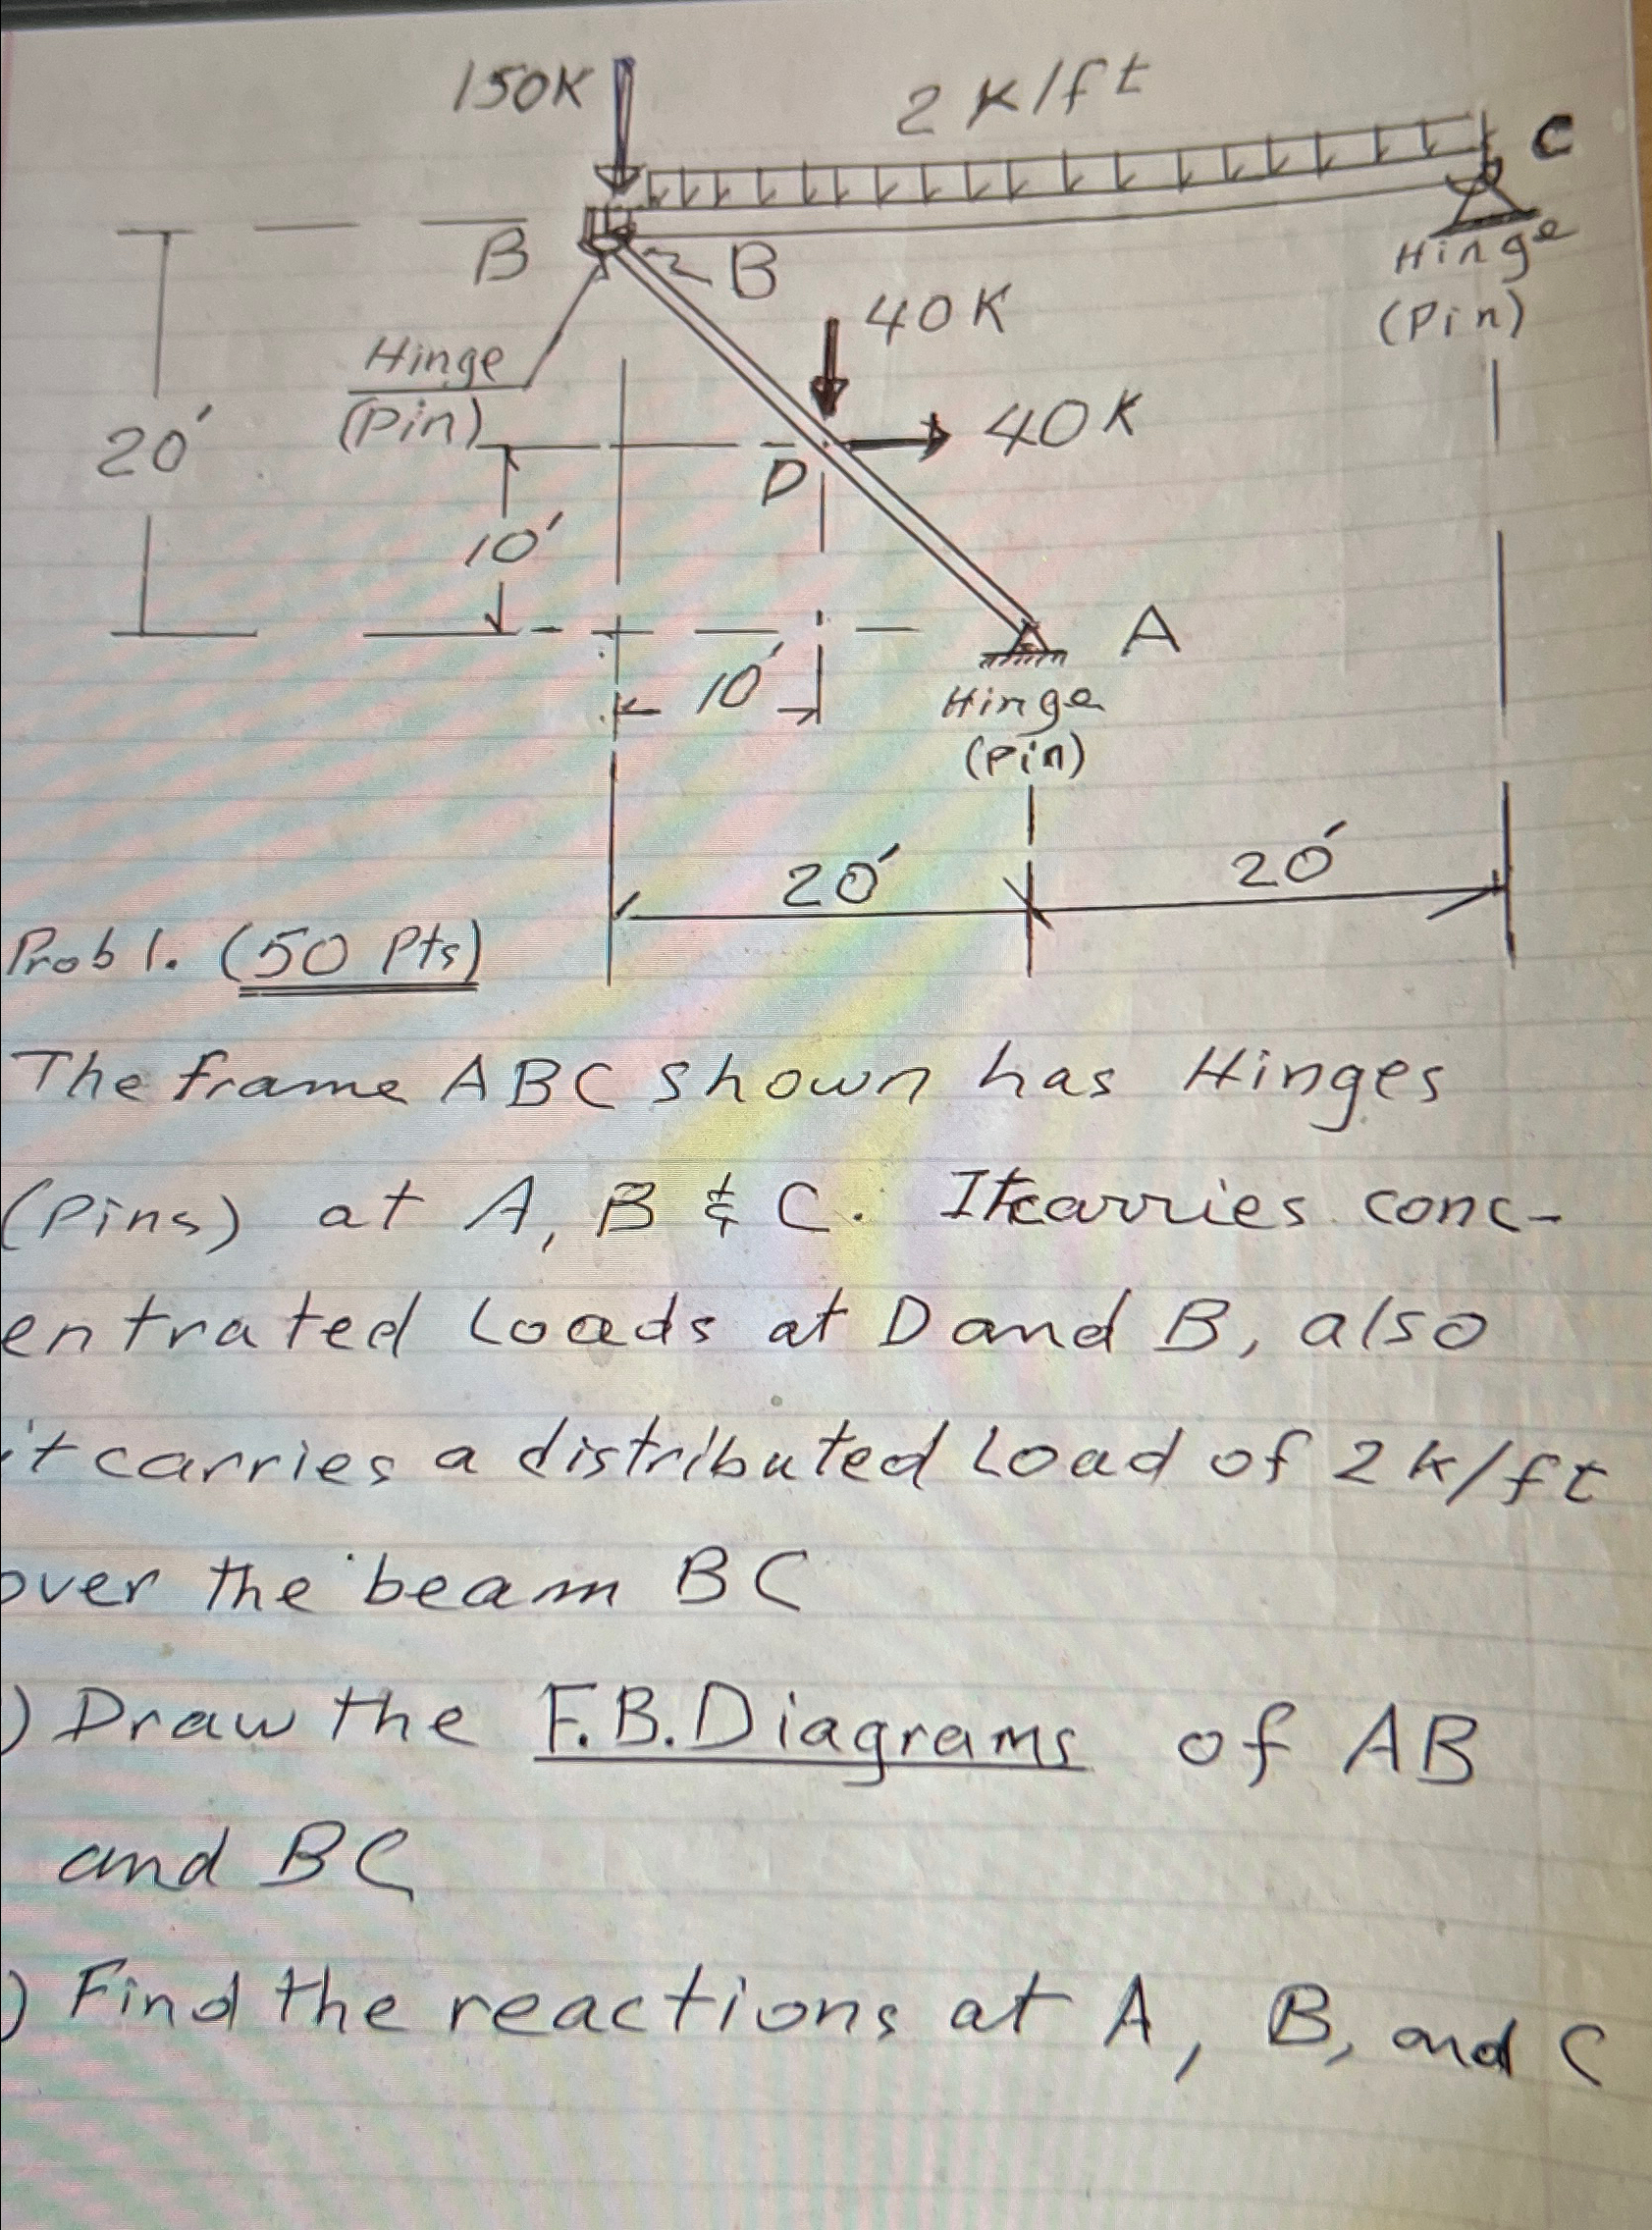 150K
2 K/ft
C
B
B
Hinge
(Pin)
40K
Hinge
(Pin)
20'
40K
D
10'
A
10'
Hinge
(Pin)
20'
20'
Prob 1. (50 Pts)
The frame ABC shown has Hinges
(Pins) at A, B & C. It carries conc-
entrated Loads at D and B, also
it carries a distributed Load of 2 k/ft
over the beam BC
) Draw the F.B.Diagrams of AB
and BC
) Find the reactions at A, B, and C